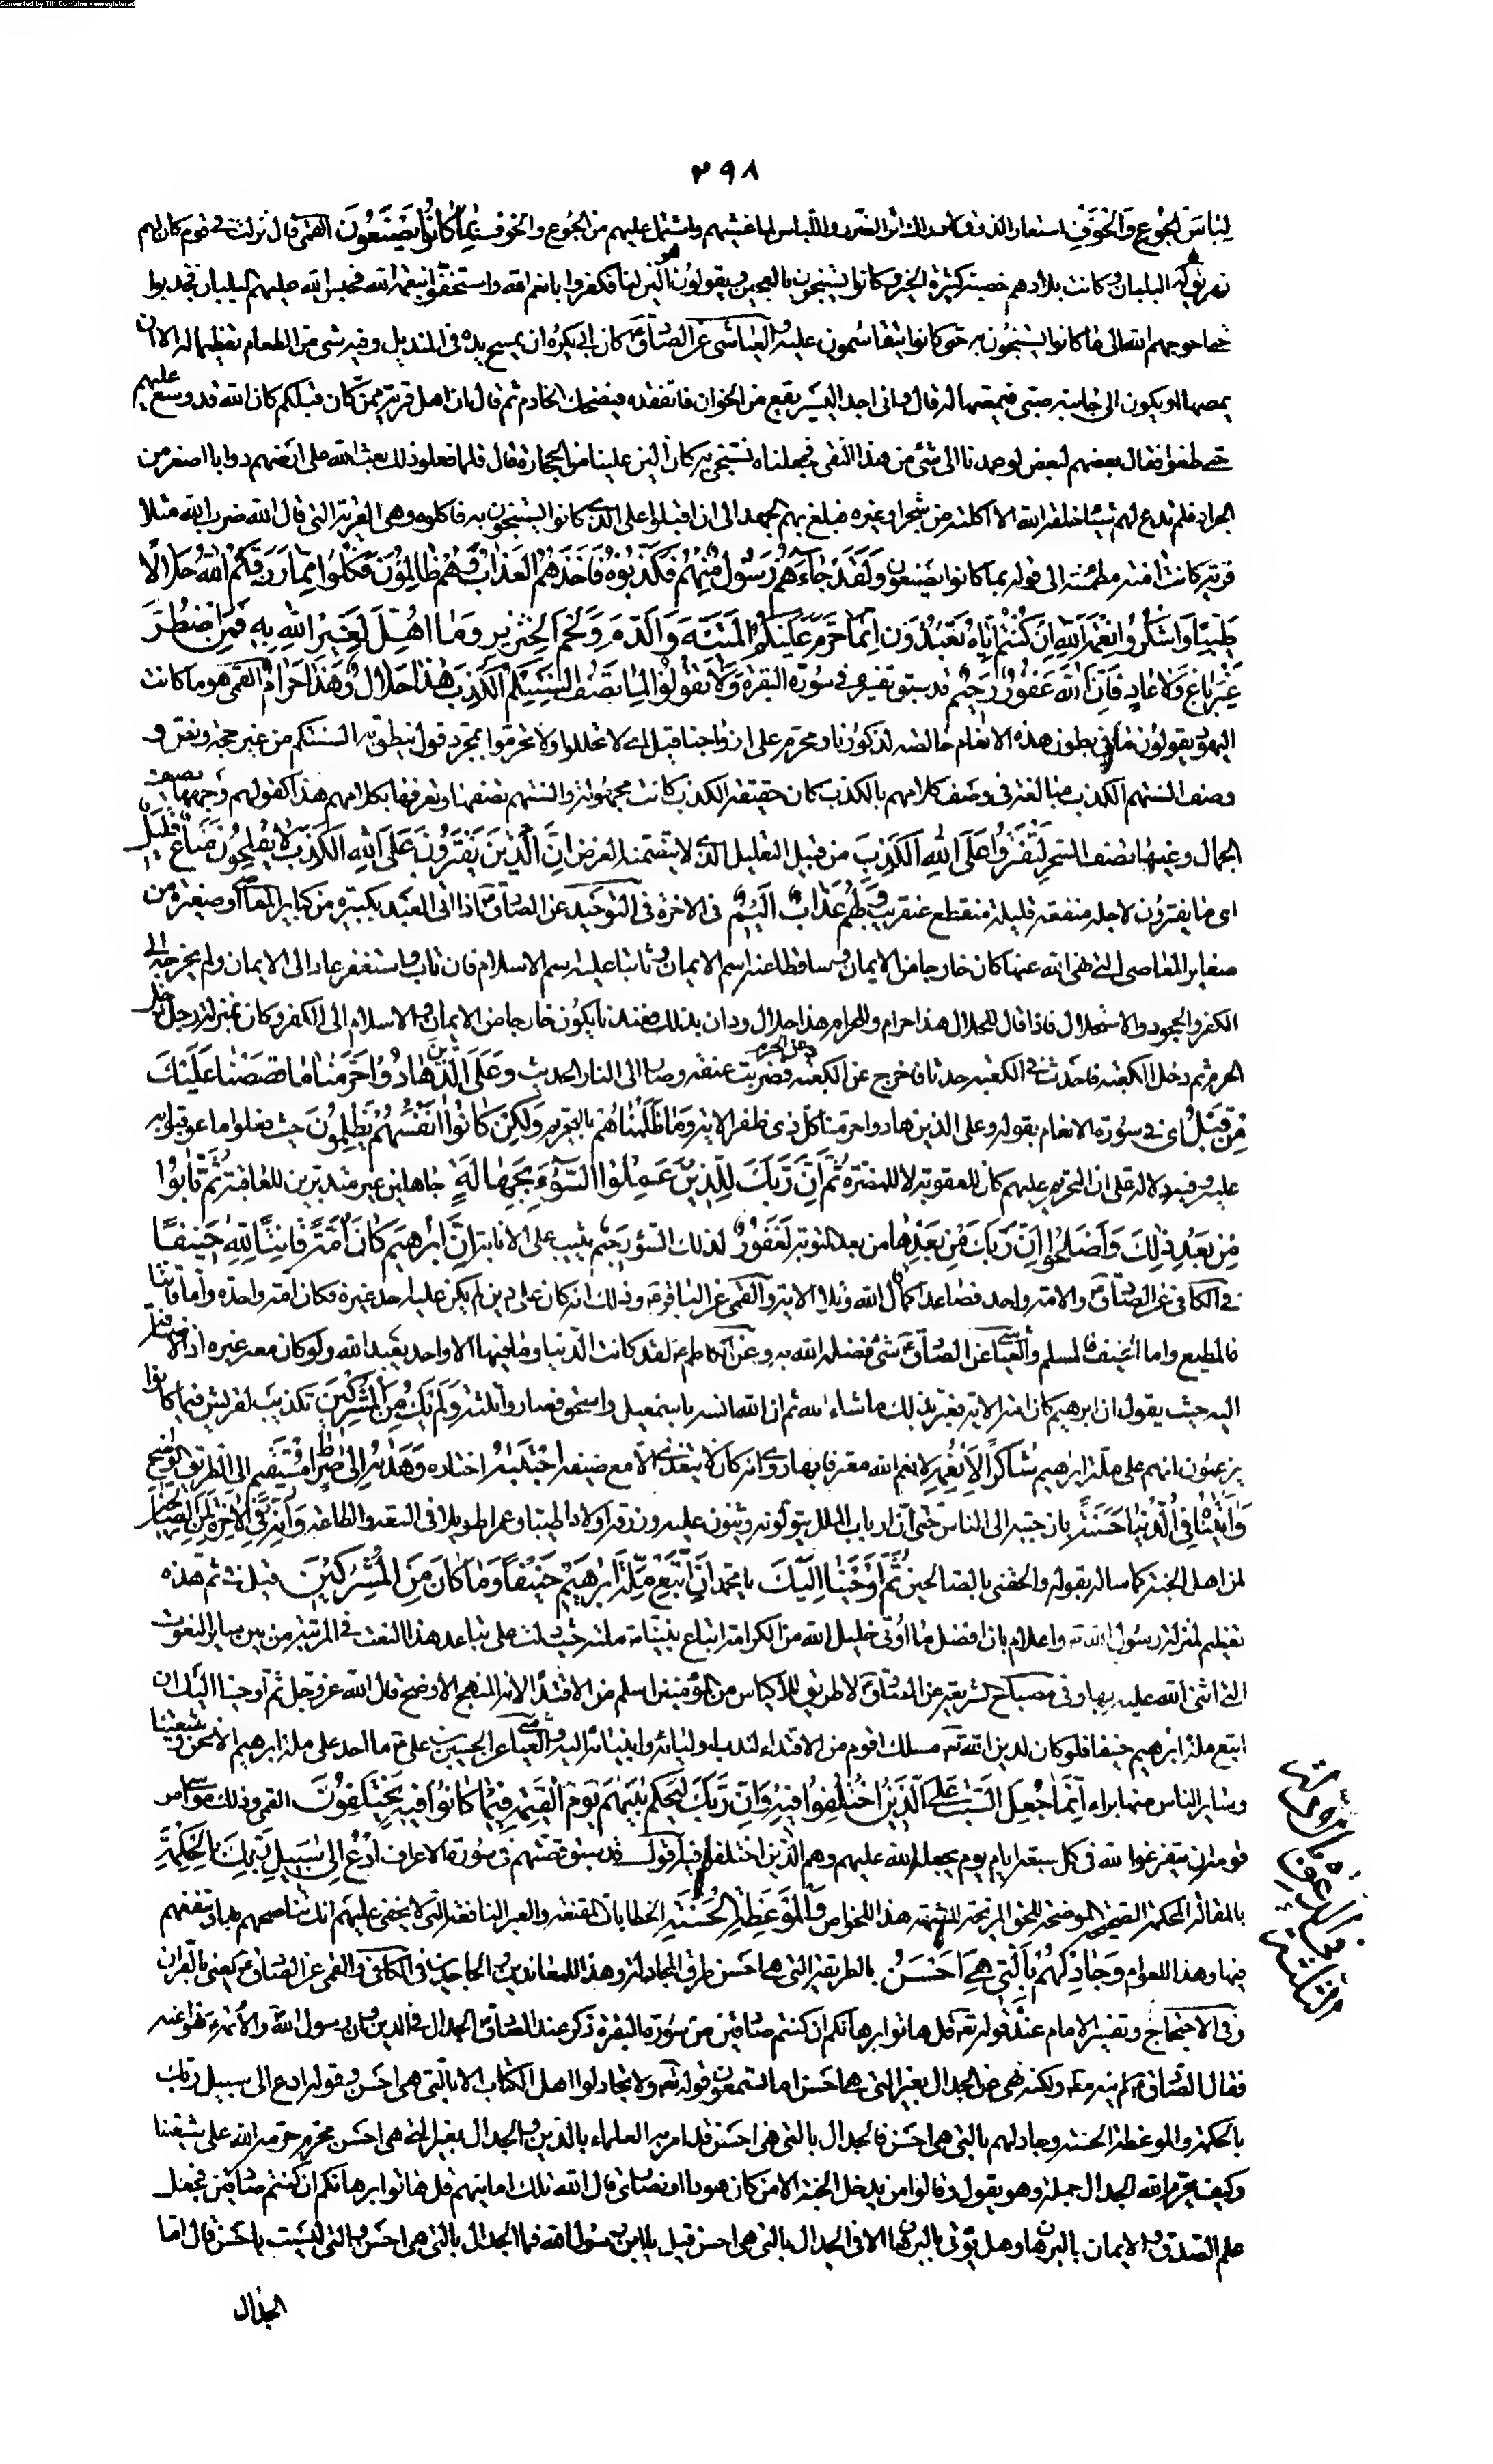 Converted by Tiff Combine - unregistered
٢٩٨
لِبَاسَ الْجُوعِ وَالْخَوْفِ استعار الذوق لادراك اثر الضرر واللباس لما غشيهم واشتمل عليهم من الجوع والخوف بِمَا كَانُوا يَصْنَعُونَ القمى قال نزلت فى قوم كان لهم
نهر يق له البليان وكانت بلادهم خصبة كثيرة الخير وكانوا يستنجون بالعجين ويقولون هو الين لنا فكفروا بانعم الله واستخفوا بنعمة الله فحبس الله عليهم البليان فجدبوا
حتى احوجهم الله الى ما كانوا يستنجون به حتى كانوا يتقاسمون عليه والعياشى عن الصادق ع كان ابى يكره ان يمسح يده فى المنديل وفيه شئ من الطعام تعظيما له الا ان
يمصها او يكون الى جانبه صبى فيمصها له قال وانى اجد اليسير يقع من الخوان فاتفقده فيضحك الخادم ثم قال ان اهل قرية ممن كان قبلكم كان الله قد وسع عليهم
حتى طغوا فقال بعضهم لبعض لو عمدنا الى شئ من هذا النقى فجعلناه نستنجى به كان الين علينا من الحجارة قال فلما فعلوا ذلك بعث الله على ارضهم دوابا اصغر من
الجراد فلم تدع لهم شيئا خلقه الله الا اكلته من شجر او غيره فبلغ بهم الجهد الى ان اقبلوا على الذى كانوا يستنجون به فاكلوه وهى القرية التى قال الله ضرب الله مثلا
قرية كانت امنة مطمئنة الى قوله بما كانوا يصنعون وَلَقَدْ جَاءَهُمْ رَسُولٌ مِنْهُمْ فَكَذَّبُوهُ فَأَخَذَهُمُ الْعَذَابُ وَهُمْ ظَالِمُونَ فَكُلُوا مِمَّا رَزَقَكُمُ اللهُ حَلَالًا
طَيِّبًا وَاشْكُرُوا نِعْمَةَ اللهِ إِنْ كُنْتُمْ إِيَّاهُ تَعْبُدُونَ إِنَّمَا حَرَّمَ عَلَيْكُمُ الْمَيْتَةَ وَالدَّمَ وَلَحْمَ الْخِنْزِيرِ وَمَا أُهِلَّ لِغَيْرِ اللهِ بِهِ فَمَنِ اضْطُرَّ
غَيْرَ بَاغٍ وَلَا عَادٍ فَإِنَّ اللهَ غَفُورٌ رَحِيمٌ قد سبق تفسيره فى سورة البقرة وَلَا تَقُولُوا لِمَا تَصِفُ أَلْسِنَتُكُمُ الْكَذِبَ هَذَا حَلَالٌ وَهَذَا حَرَامٌ القمى هو ما كانت
اليهود يقولون ما فى بطون هذه الانعام خالصة لذكورنا ومحرم على ازواجنا قيل اى لا تحللوا ولا تحرموا بمجرد قول ينطق به السنتكم من غير حجة ونص و
وصف السنتهم الكذب مبالغة فى وصف كلامهم بالكذب كان حقيقة الكذب كانت مجهولة والسنتهم تصفها وتعرفها بكلامهم هذا كقولهم وجهها يصف
الجمال وعينها تصف السحر لِتَفْتَرُوا عَلَى اللهِ الْكَذِبَ من قبيل التعليل الذى لا يتضمن الغرض إِنَّ الَّذِينَ يَفْتَرُونَ عَلَى اللهِ الْكَذِبَ لَا يُفْلِحُونَ مَتَاعٌ قَلِيلٌ
اى ما يفترون لاجله منفعة قليلة منقطع عنقريب وَلَهُمْ عَذَابٌ أَلِيمٌ فى الاخرة فى التوحيد عن الصادق ع اذا اتى العبد بكبيرة من كباير المعاصى او صغيرة من
صغاير المعاصى التى نهى الله عنها كان خارجا من الايمان وساقطا عنه اسم الايمان وثابتا عليه اسم الاسلام فان تاب واستغفر عاد الى الايمان ولم يخرجه الى
الكفر والجحود والاستحلال فاذا قال للحلال هذا حرام وللحرام هذا حلال ودان بذلك فعندها يكون خارجا من الايمان والاسلام الى الكفر وكان بمنزلة رجل دخل
الحرم ثم دخل الكعبة فاحدث فى الكعبة حدثا فاخرج عن الكعبة وعن الحرم فضربت عنقه وصار الى النار الحديث وَعَلَى الَّذِينَ هَادُوا حَرَّمْنَا مَا قَصَصْنَا عَلَيْكَ
مِنْ قَبْلُ اى فى سورة الانعام بقوله وعلى الذين هادوا حرمنا كل ذى ظفر الاية وَمَا ظَلَمْنَاهُمْ بالتحريم وَلَكِنْ كَانُوا أَنْفُسَهُمْ يَظْلِمُونَ حيث فعلوا ما عوقبوا به
عليه وفيه دلالة على ان التحريم عليهم كان للعقوبة لا للمضرة ثُمَّ إِنَّ رَبَّكَ لِلَّذِينَ عَمِلُوا السُّوءَ بِجَهَالَةٍ جاهلين غير متدبرين للعاقبة ثُمَّ تَابُوا
مِنْ بَعْدِ ذَلِكَ وَأَصْلَحُوا إِنَّ رَبَّكَ مِنْ بَعْدِهَا من بعد التوبة لَغَفُورٌ لذلك السوء رَحِيمٌ يثيب على الانابة إِنَّ إِبْرَهِيمَ كَانَ أُمَّةً قَانِتًا لِلَّهِ حَنِيفًا
فى الكافى عن الصادق ع والامة واحد فصاعدا كما قال الله وتلا الاية والقمى عن الباقر ع وذلك انه كان على دين لم يكن عليه احد غيره فكان امة واحدة واما قانتا
فالمطيع واما الحنيف فالمسلم والعياشى عن الصادق ع شئ فضله الله به وعن الكاظم ع لقد كانت الدنيا وما فيها الا واحد يعبد الله ولو كان معه غيره اذا لاضافه
اليه حيث يقول ان ابرهيم كان امة الاية فغبر بذلك ما شاء الله ثم ان الله انسه باسمعيل واسحق فصاروا ثلثة وَلَمْ يَكُ مِنَ الْمُشْرِكِينَ تكذيب لقريش فيما كانوا
يزعمون انهم على ملة ابرهيم شَاكِرًا لِأَنْعُمِهِ لانعم الله معترفا بها روى انه كان لا يتغدى الا مع ضيفه اجْتَبَاهُ اختاره وَهَدَاهُ إِلَى صِرَاطٍ مُسْتَقِيمٍ الى الطريق الواضح
وَآتَيْنَاهُ فِي الدُّنْيَا حَسَنَةً بان حببه الى الناس حتى ان ارباب الملل يتولونه ويثنون عليه ورزقه اولادا طيبة وعمرا طويلا فى السعة والطاعة وَإِنَّهُ فِي الْآخِرَةِ لَمِنَ الصَّالِحِينَ
لمن اهل الجنة كما ساله بقوله والحقنى بالصالحين ثُمَّ أَوْحَيْنَا إِلَيْكَ يا محمد أَنِ اتَّبِعْ مِلَّةَ إِبْرَهِيمَ حَنِيفًا وَمَا كَانَ مِنَ الْمُشْرِكِينَ قيل فى ثم هذه
تعظيم لمنزلة رسول الله ص واعلام بان افضل ما اوتى خليل الله من الكرامة اتباع نبينا ملته حيث دلت على تباعد هذا النعت فى المرتبة من بين ساير النعوت
التى اثنى الله عليه بها وفى مصباح الشريعة عن الصادق ع لا طريق للاكياس من المؤمنين اسلم من الاقتداء لانه المنهج الاوضح قال الله عز وجل ثم اوحينا اليك ان
اتبع ملة ابرهيم حنيفا فلو كان لدين الله تع مسلك اقوم من الاقتداء لندب اولياءه وانبياءه اليه والعياشى عن الحسين بن على ع ما احد على ملة ابرهيم الا نحن وشيعتنا
وساير الناس منها براء إِنَّمَا جُعِلَ السَّبْتُ عَلَى الَّذِينَ اخْتَلَفُوا فِيهِ وَإِنَّ رَبَّكَ لَيَحْكُمُ بَيْنَهُمْ يَوْمَ الْقِيَمَةِ فِيمَا كَانُوا فِيهِ يَخْتَلِفُونَ القمى وذلك ان موسى امر
قومه ان يتفرغوا لله فى كل سبعة ايام يوم يجعله الله عليهم وهم الذين اختلفوا فيه اقول قد سبق قصتهم فى سورة الاعراف ادْعُ إِلَى سَبِيلِ رَبِّكَ بِالْحِكْمَةِ
بالمقالة المحكمة الصحيحة الموضحة للحق المزيحة للشبهة هذا للخواص وَالْمَوْعِظَةِ الْحَسَنَةِ الخطابات المقنعة والعبر النافعة التى لا يخفى عليهم انك تناصحهم بها وتنفعهم
فيها وهذا للعوام وَجَادِلْهُمْ بِالَّتِي هِيَ أَحْسَنُ بالطريقة التى هى احسن طرق المجادلة وهذا للمعاندين والجاحدين فى الكافى والقمى عن الصادق ع يعنى بالقران
وفى الاحتجاج وتفسير الامام عند قوله تع قل هاتوا برهانكم ان كنتم صادقين من سورة البقرة ذكر عند الصادق ع الجدال فى الدين وان رسول الله والائمة ع نهوا عنه
فقال الصادق ع لم ينه عنه ولكنه نهى عن الجدال بغير التى هى احسن اما تستمعون قوله تع ولا تجادلوا اهل الكتاب الا بالتى هى احسن وقوله ادع الى سبيل ربك
بالحكمة والموعظة الحسنة وجادلهم بالتى هى احسن فالجدال بالتى هى احسن قد امر به العلماء بالدين والجدال بغير التى هى احسن محرم حرمه الله على شيعتنا
وكيف يحرم الله الجدال جملة وهو يقول وقالوا لن يدخل الجنة الا من كان هودا او نصارى قال الله تلك امانيهم قل هاتوا برهانكم ان كنتم صادقين فجعل
علم الصدق والايمان بالبرهان وهل يؤتى بالبرهان الا فى الجدال بالتى هى احسن قيل يا بن رسول الله فما الجدال بالتى هى احسن والتى ليست باحسن قال اما
الجدال